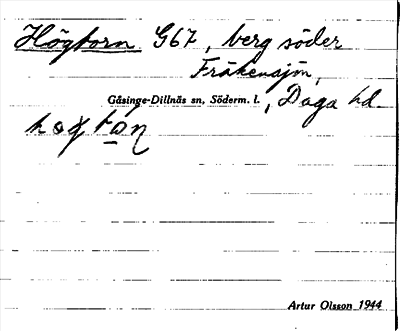 Högtorn G67, berg söder
Fräkensjön,
Gåsinge-Dillnäs sn, Söderm. l., Daga hd
Artur Olsson 1944